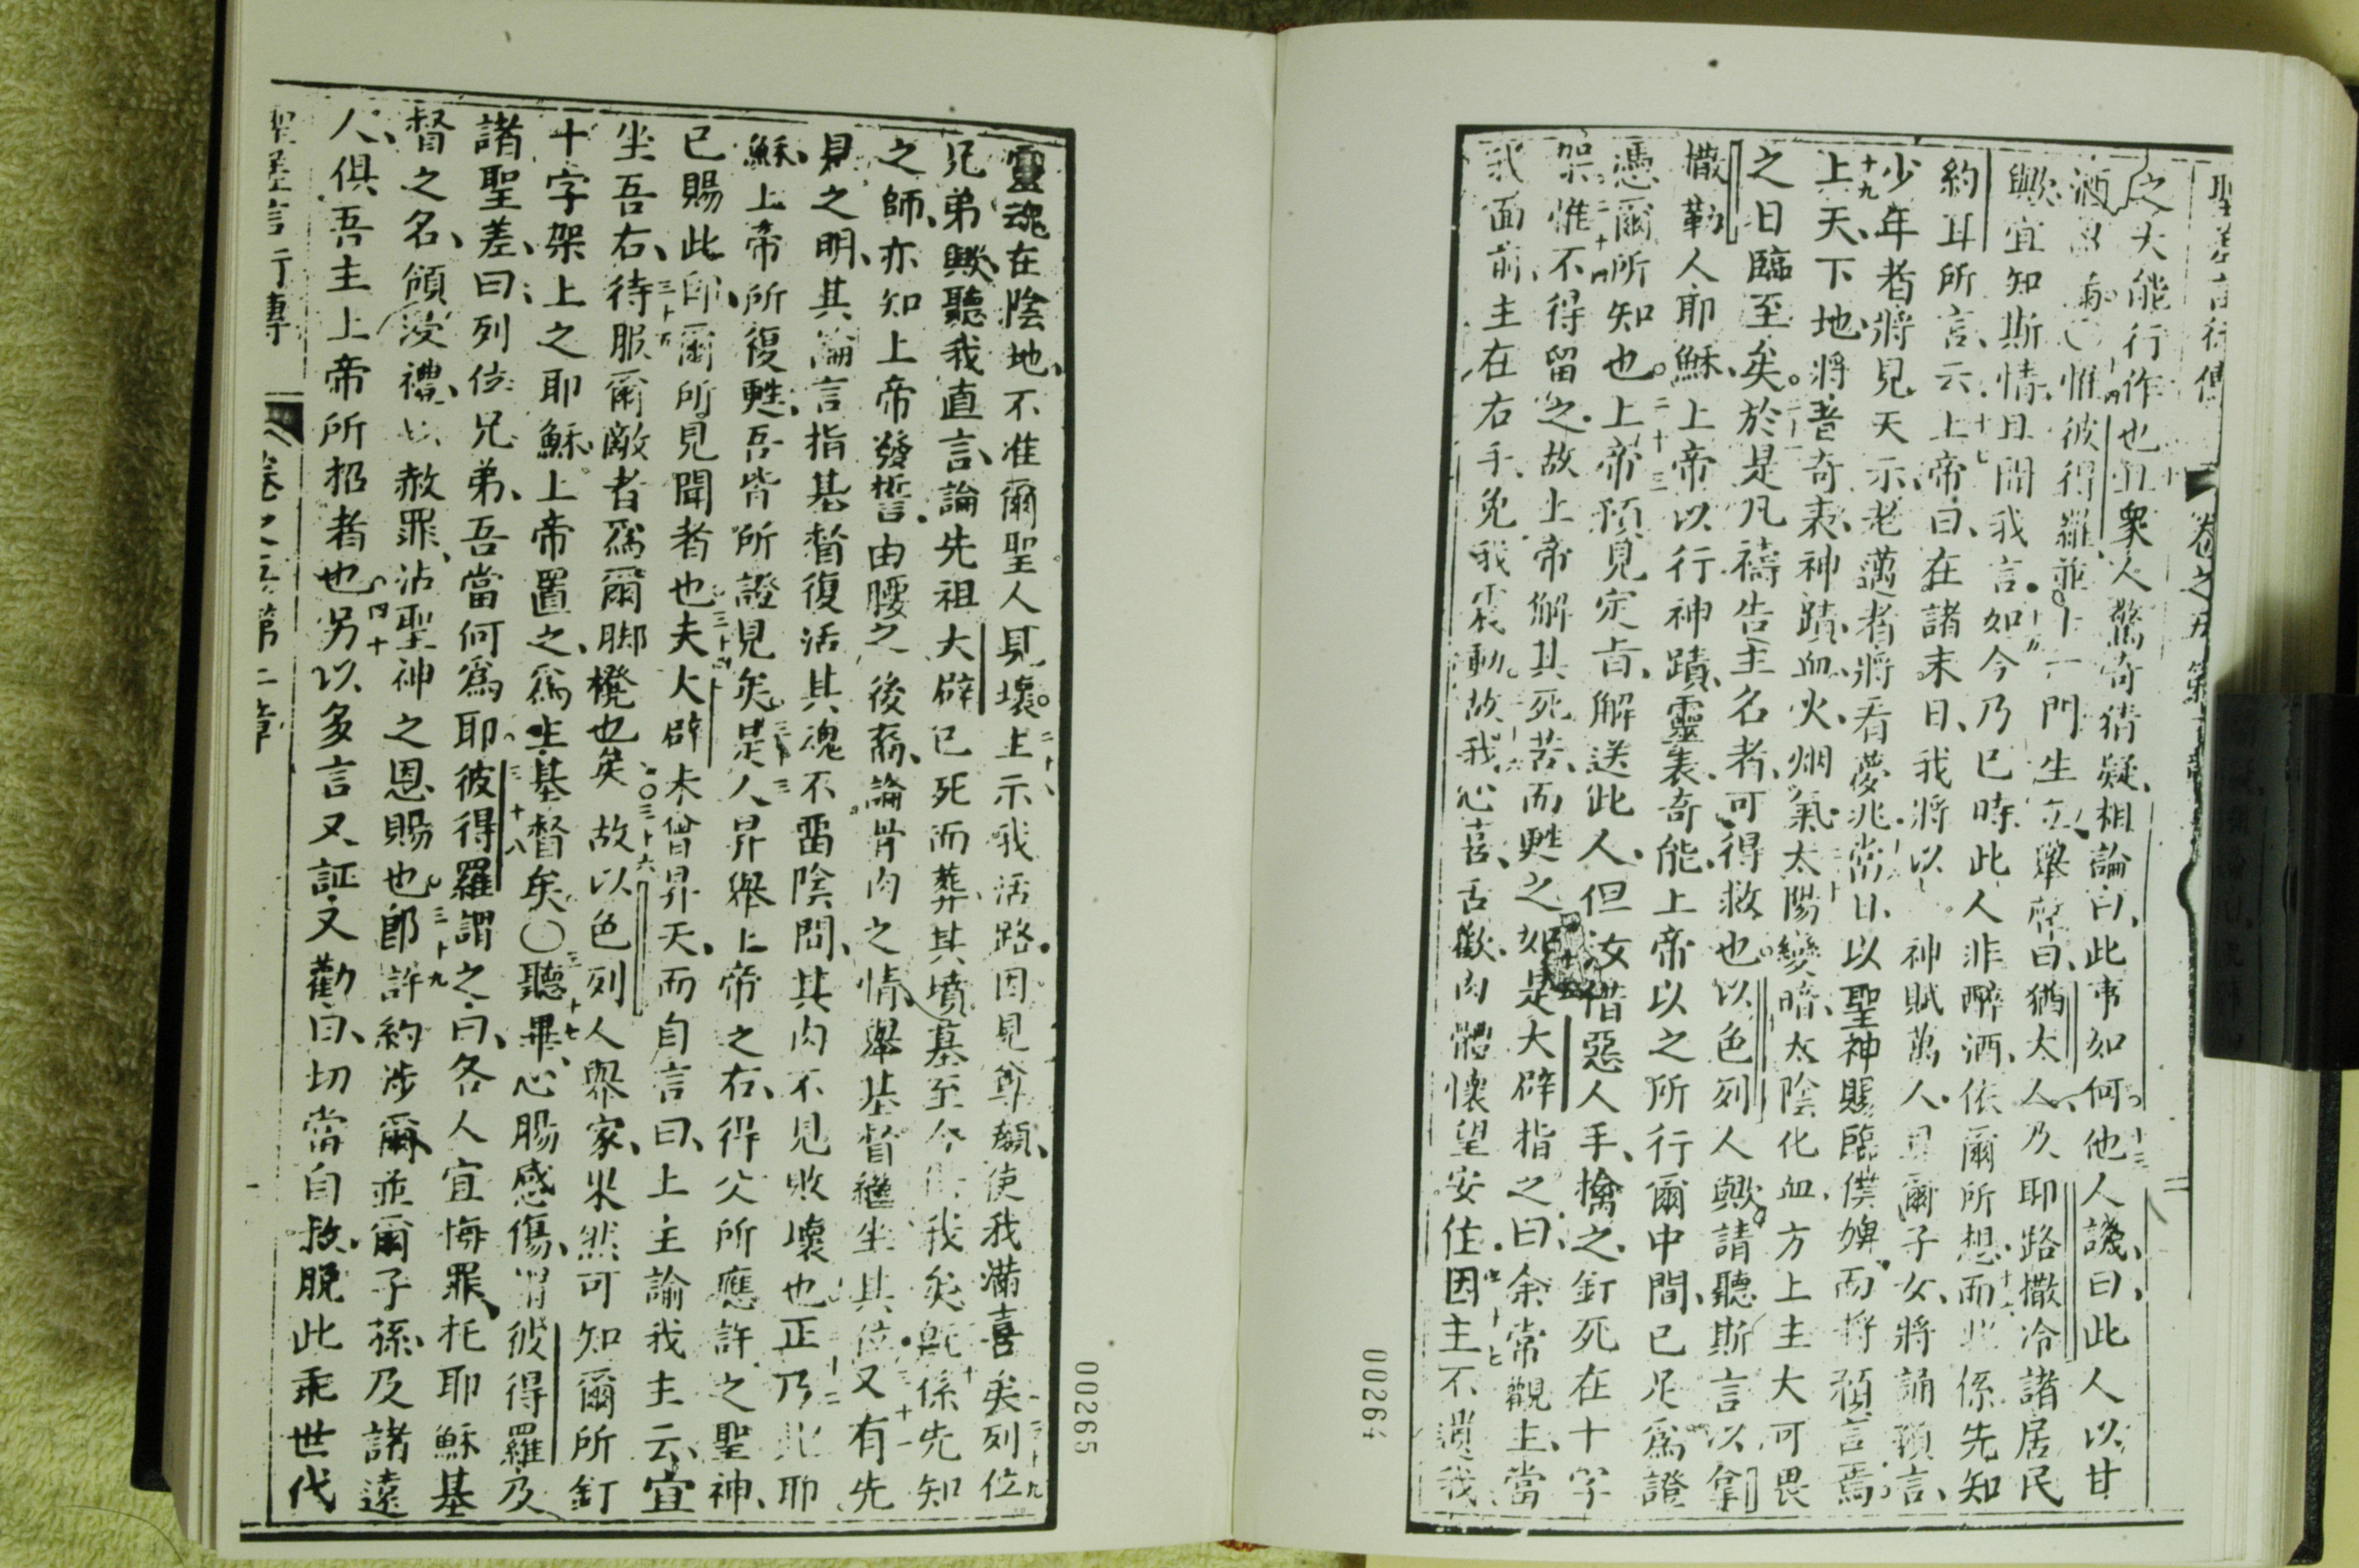 聖差言行傳 卷之五 第二章
之大能行作也且眾人驚奇猜疑相論曰此事如何他人譏曰此人以甘
酒惟彼得羅並十一門生立舉聲曰猶大人及耶路撒冷諸居民
歟宜知斯情且聞我言如今乃巳時此人非醉酒依爾所想而此係先知
約耳所言云上帝曰在諸末日我將以神賦萬人且爾子女將誦預言
少年者將見天示老邁者將看夢兆當日以聖神賜臨僕婢而將預言焉
上天下地將著奇表神蹟血火烟氣太陽變暗太陰化血方上主大可畏
之日臨至矣於是凡禱告主名者可得救也以色列人歟請聽斯言以拿
撒勒人耶穌上帝以行神蹟靈表奇能上帝以之所行爾中間已足爲證
憑爾所知也上帝預見定旨解送此人但汝借惡人手擒之釘死在十字
架惟不得留之故上帝解其死苦而甦之如是大辟指之曰余常觀主當
我面前主在右手免我震動故我心喜舌歡肉體懷望安住因主不遺我
00264
靈魂在陰地不准爾聖人見壞上示我活路因見尊顏使我滿喜矣列位
兄弟歟聽我直言論先祖大辟已死而葬其墳墓至今我矣旣係先知
之師亦知上帝發誓由腰之後裔論骨肉之情舉基督繼坐其位又有先
見之明其論言指基督復活其魂不留陰間其肉不見敗壞也正乃此耶
穌上帝所復甦吾皆所證見矣是人昇舉上帝之右得父所應許之聖神
已賜此卽爾所見聞者也夫大辟未曾昇天而自言曰上主諭我主云宜
坐吾右待服爾敵者爲爾脚櫈也矣故以色列人舉家果然可知爾所釘
十字架上之耶穌上帝置之爲主基督矣〇聽畢心腸感傷謂彼得羅及
諸聖差曰列位兄弟吾當何爲耶彼得羅謂之曰各人宜悔罪托耶穌基
督之名領浸禮以赦罪沾聖神之恩賜也卽許約涉爾並爾子孫及諸遠
人俱吾主上帝所招者也另以多言又証又勸曰切當自救脫此乖世代
聖差言行傳 卷之五 第二章
00265